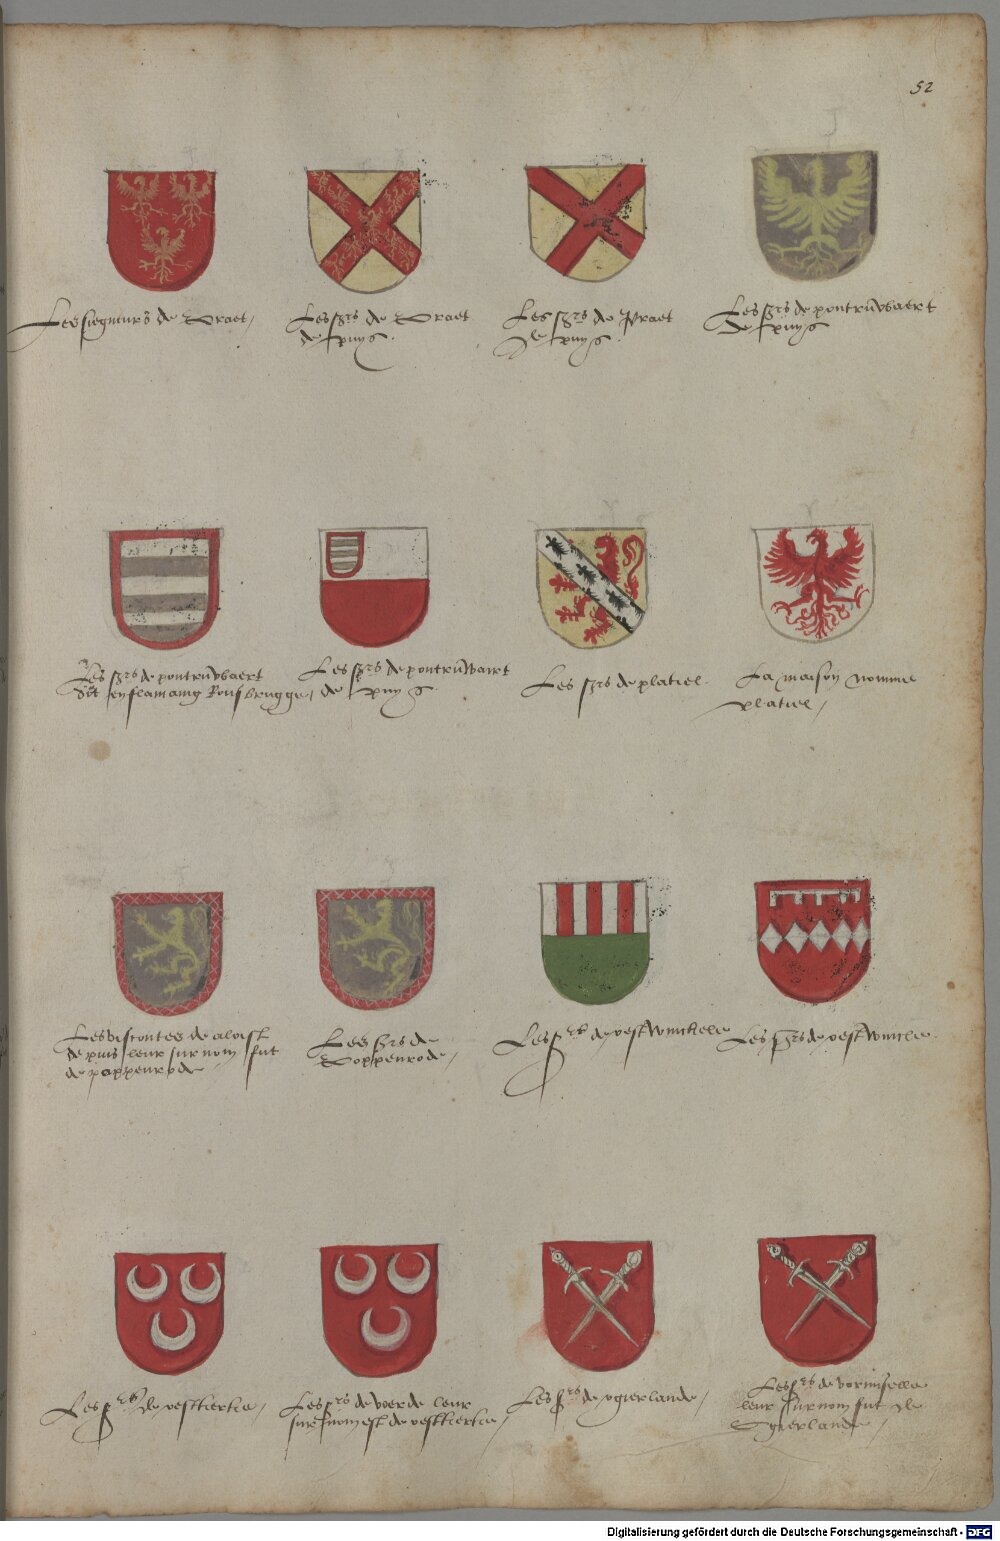 52
Les seigneurs de Praet,
Les srs de Praet
de puys.
Les srs de Praet
de puys.
Les srs de pontrũvvaert
de puys
Les srs de pontrũvvaert
dit en flamaing Rousbrugge,
Les srs de pontrũwaert
de puys.
Les srs de platiel.
La maison nomme
platiel,
Les viscontes de alost
de puis leur surnom fut
de poppenrode
Les srs de
Poppenrode,
Les srs de vestwinckele
Les srs de vestwincle.
Les srs de vestkercke,
Les srs de voerde leur
surnom est de vestkercke,
Les srs de ogierlande,
Les srs de vormiselle
leur surnom fut de
Ogierlande,
Digitalisierung gefördert durch die Deutsche Forschungsgemeinschaft - DFG